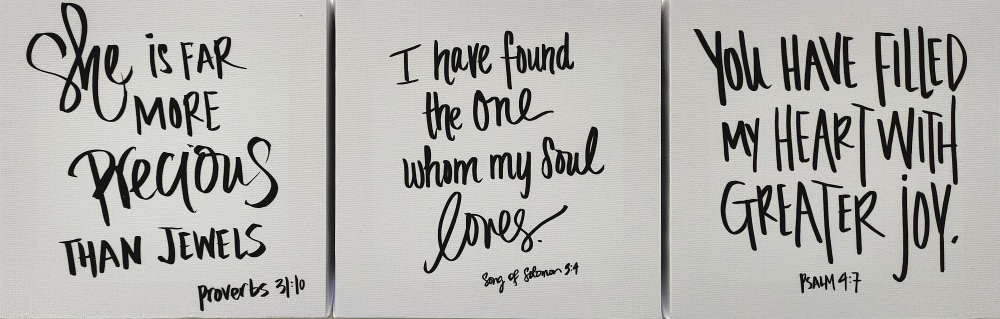 She is FAR
MORE
Precious
THAN JEWELS
Proverbs 31:10
I have found
the One
whom my Soul
loves.
Song of Solomon 3:4
YOU HAVE FILLED
MY HEART WITH
GREATER JOY.
PSALM 4:7